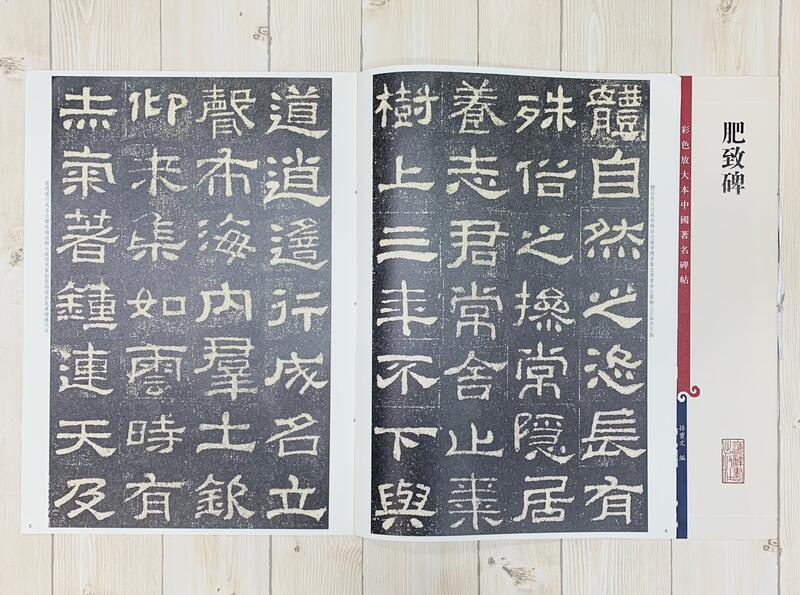 肥致碑
彩色放大本中國著名碑帖
孫寶文 編
體自然之恣長有
殊俗之操常隱居
養志君常舍止棗
樹上三年不下與
4
道逍遙行成名立
聲布海内羣士欽
仰来集如雲時有
赤氣著鍾連天及
5